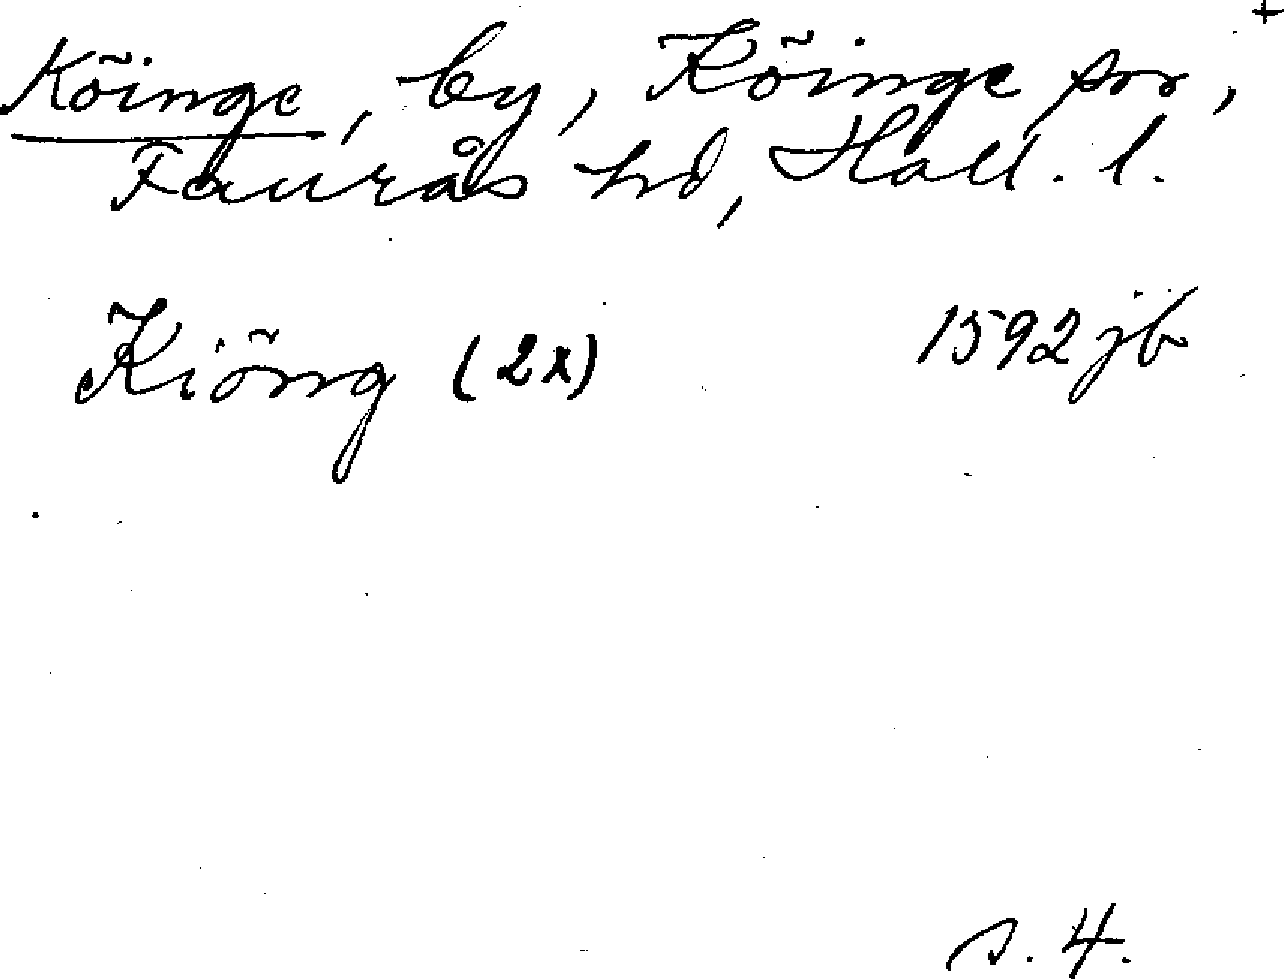 +
Köinge, by, Köinge sn,
Faurås hd, Hall. l.
Kiöng (2x) 1592 jb
s. 4.